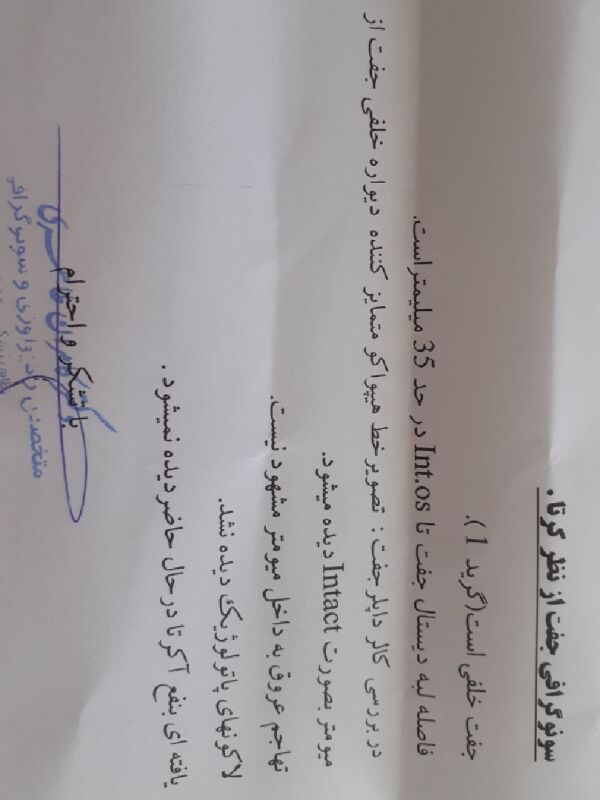 سونوگرافی جفت از نظر کرتا.
جفت خلفی است(گرید 1).
فاصله لبه دیستال جفت تا Int.os در حد 35 میلیمتر است.
در بررسی کالر داپلر جفت : تصویر خط هیپواکو متمایز کننده دیواره خلفی جفت از
میومتر بصورت Intact دیده میشود.
تهاجم عروق به داخل میومتر مشهود نیست.
لاکونهای پاتولوژیک دیده نشد.
یافته ای بنفع آکرتا در حال حاضر دیده نمیشود .
با تشکر و احترام
متخصص رادیولوژی و سونوگرافی